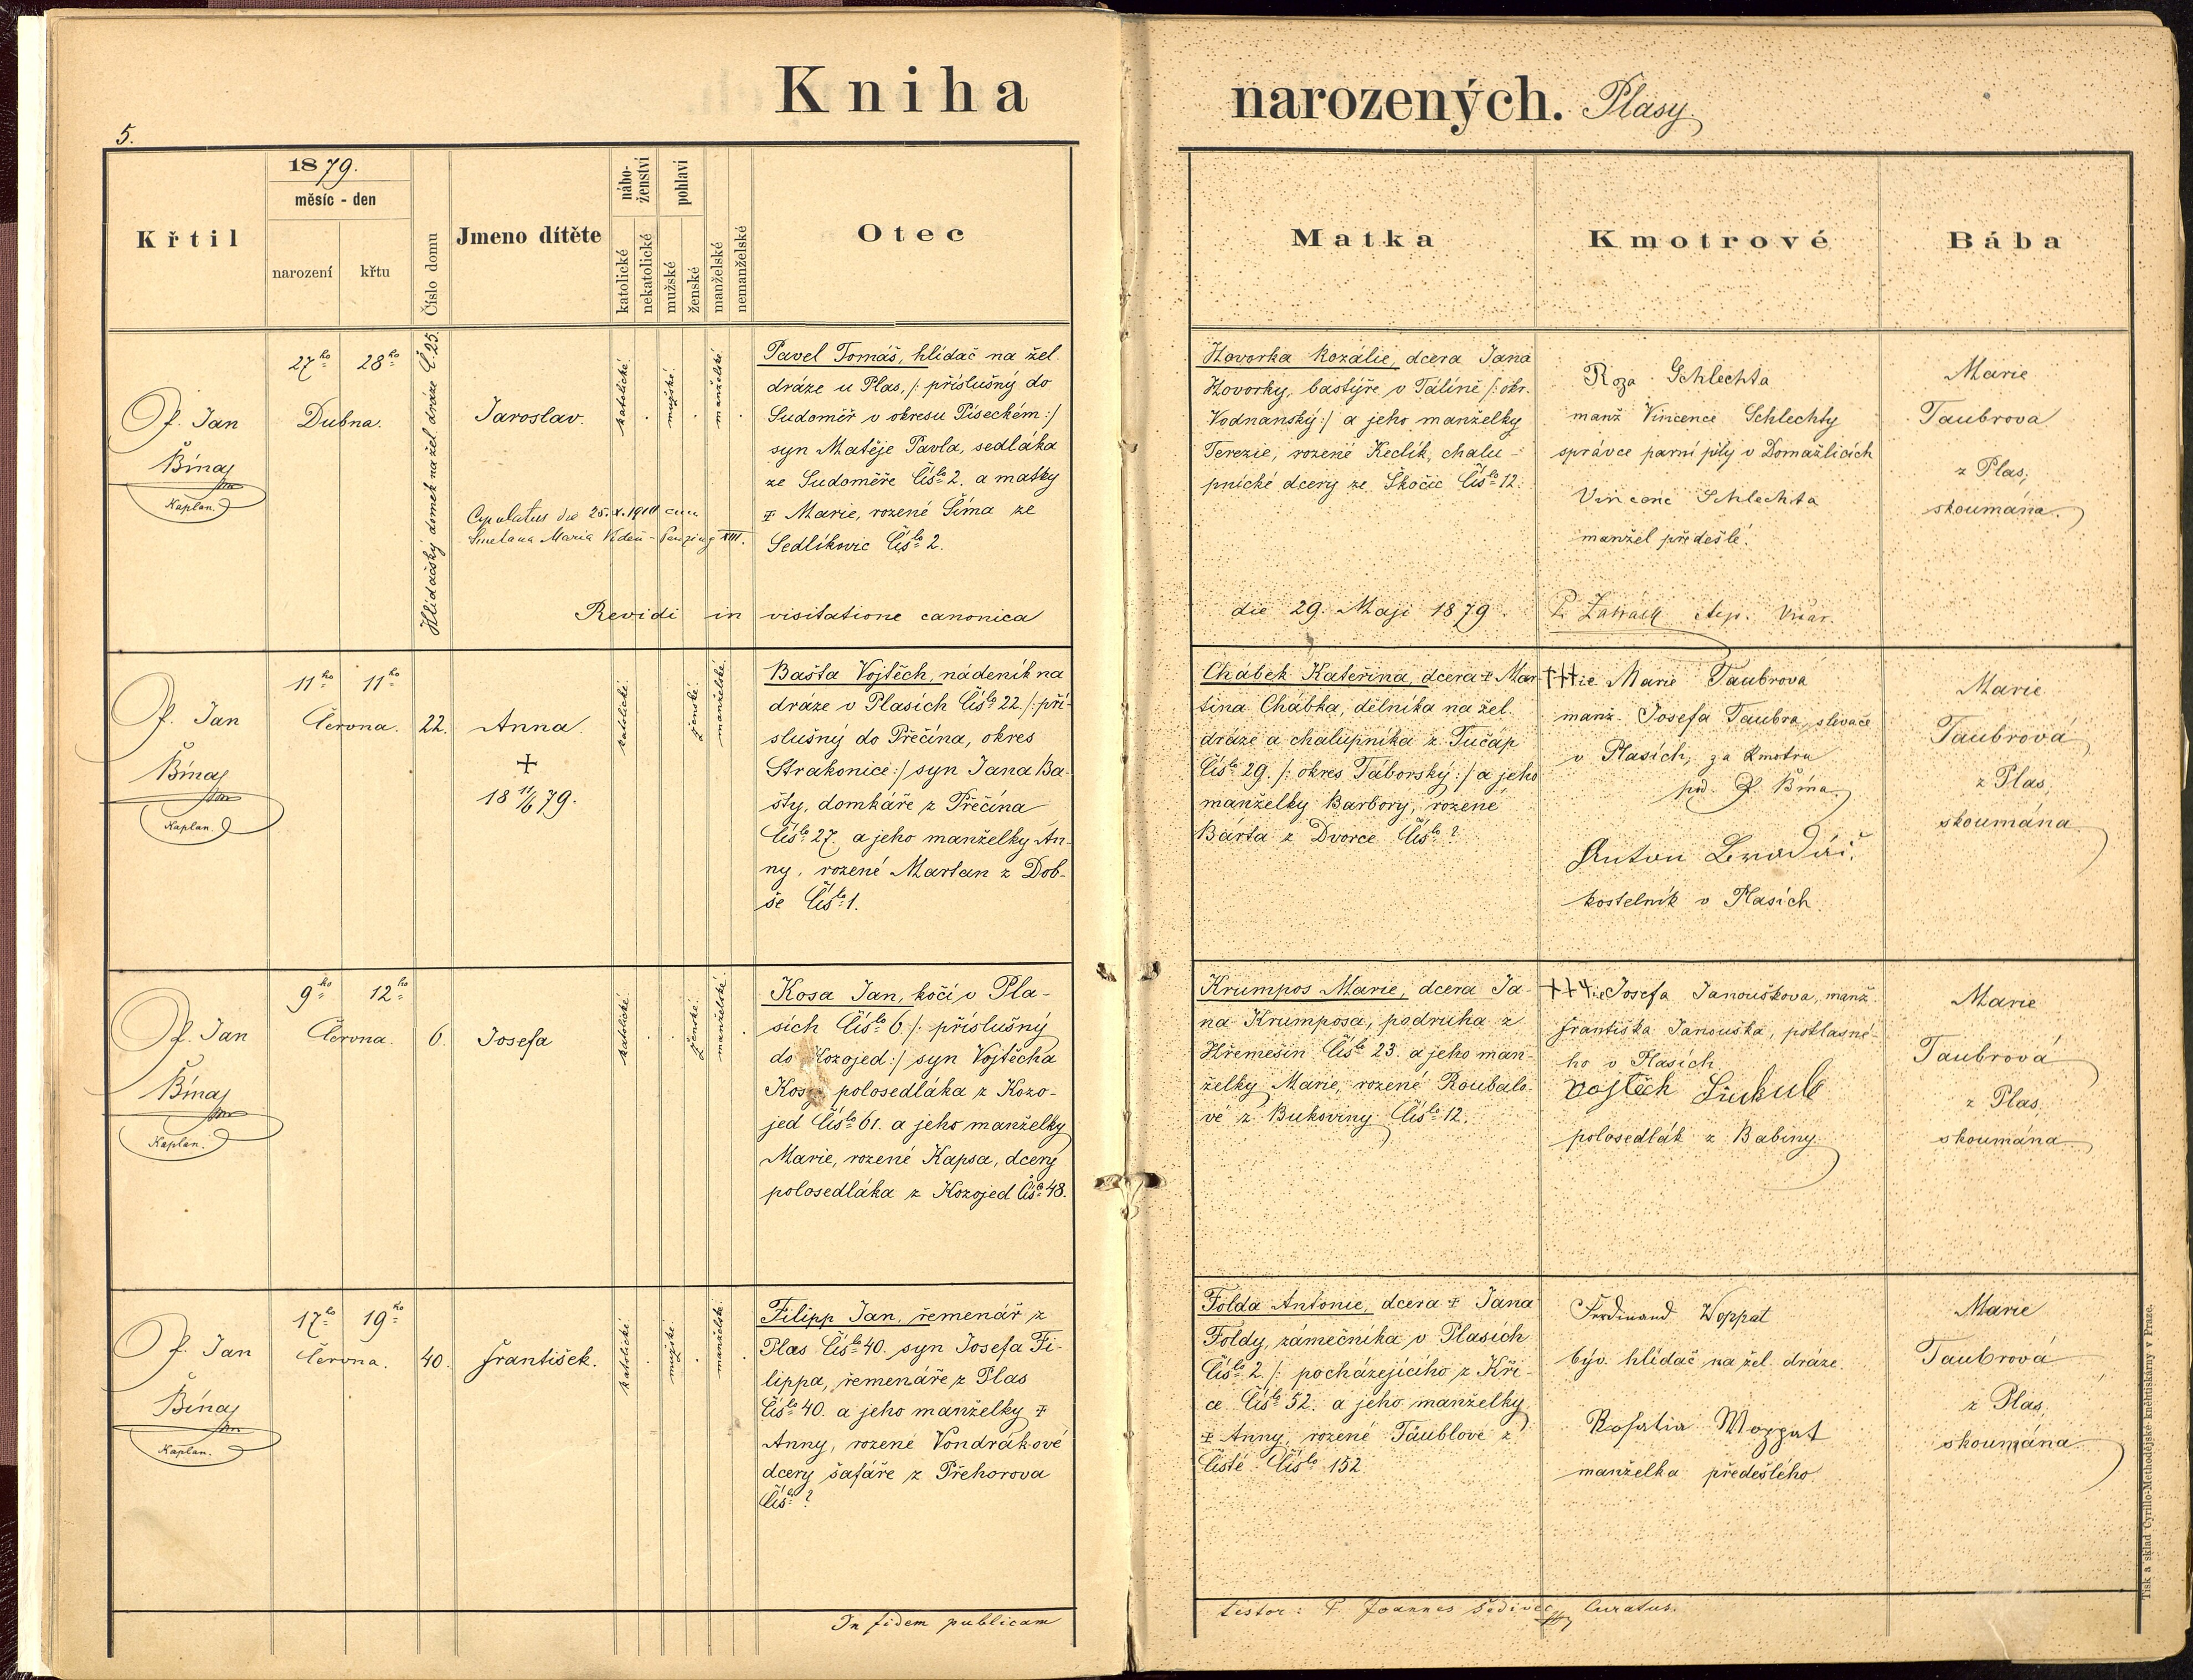 Kniha narozených. Plasy
5.
1879.
měsíc - den
Křtil
narození
křtu
Číslo domu
Jmeno dítěte
nábo-
ženství
katolické
nekatolické
pohlaví
mužské
ženské
manželské
nemanželské
Otec
Matka
Kmotrové
Bába
P. Jan
Bína
Kaplan.
27ho 28ho
Dubna.
Hlídačský domek na žel. dráze Č. 25.
Jaroslav.
Copulatus die 25.X.1910 cum
Smetana Maria Vídeň - Penzing XIII.
katolické
mužské.
manželské
Pavel Tomáš, hlídač na žel.
dráze u Plas, /: příslušný do
Sudoměř v okresu Píseckém :/
syn Matěje Pavla, sedláka
ze Sudoměře Čislo 2. a matky
Marie, rozené Šíma ze
Sedlíkovic Čislo 2.
Hovorka Rozálie, dcera Jana
Hovorky, baštýře v Tálíně /: okr.
Vodnanský :/ a jeho manželky
Terezie, rozené Keclík, chalu-
pnické dcery ze Skočic Čislo 12.
Roza Schlechta
manž Vincence Schlechty
správce parní pily v Domažlicích
Vincenc Schlechta
manžel předešlé.
Marie
Taubrova
z Plas,
skoumána.
Revidi in visitatione canonica die 29. Maji 1879. P.
P. Jan
Bína
Kaplan.
11ho 11ho
Června.
22.
Anna.
+
18 11/6 79.
katolické
ženské
manželské
Bašta Vojtěch, nádeník na
dráze v Plasích Čislo 22 /: pří-
slušný do Přečína, okres
Strakonice :/ syn Jana Ba-
šty, domkáře z Přečína
Čislo 27. a jeho manželky An-
ny, rozené Martan z Dob-
še Čislo 1.
Chábek Kateřina, dcera Mar-
tina Chábka, dělníka na žel.
dráze a chalupníka z Tučap
Čislo 29. /: okres Táborský :/ a jeho
manželky Barbory, rozené
Bárta z Dvorce Čislo ?
+++ie Marie Taubrova
manž. Josefa Taubra, slevače
v Plasích, za kmotru
pod. P. Bína.
Anton
kostelník v Plasích
Marie
Taubrová
z Plas,
skoumána.
P. Jan
Bína
Kaplan.
9ho 12ho
Června.
6.
Josefa
katolické
ženské
manželské
Kosa Jan, kočí v Pla-
sích Čislo 6. /: příslušný
do Kozojed :/ syn Vojtěcha
Kosy polosedláka z Kozo-
jed Čislo 61. a jeho manželky
Marie, rozené Kapsa, dcery
polosedláka z Kozojed Čislo 48.
Krumpos Marie, dcera Ja-
na Krumposa, podruha z
Křemešin Čislo 23. a jeho man-
želky Marie, rozené Roubalo-
vé z Bukoviny Čislo 12.
+++ie Josefa Janouškova, manž.
Františka Janouška, poklasné-
ho v Plasích
Vojtěch
polosedlák z Babiny.
Marie
Taubrová
z Plas,
skoumána.
P. Jan
Bína
Kaplan.
17ho 19ho
Června.
40.
František.
katolické
mužské.
manželské
Filipp Jan, řemenář z
Plas Čislo 40. syn Josefa Fi-
lippa, řemenáře z Plas
Čislo 40. a jeho manželky
Anny, rozené Vondrákové
dcery šafáře z Přehorova
Čislo ?
Folda Antonie, dcera Jana
Foldy, zámečníka v Plasích
Čislo 2. /: pocházejícího z Kři-
ce Čislo 52. a jeho manželky
Anny, rozené Täublové z
Čisté Čislo 152
Ferdinand Woppat
býv. hlídač na žel. dráze.
Rosalia Woppat
manželka předešlého
Marie
Taubrová
z Plas,
skoumána.
In fidem publicam testor: P. Joannes Šedivec Curatus.
Tisk a sklad Cyrillo-Methodějské knihtiskárny v Praze.